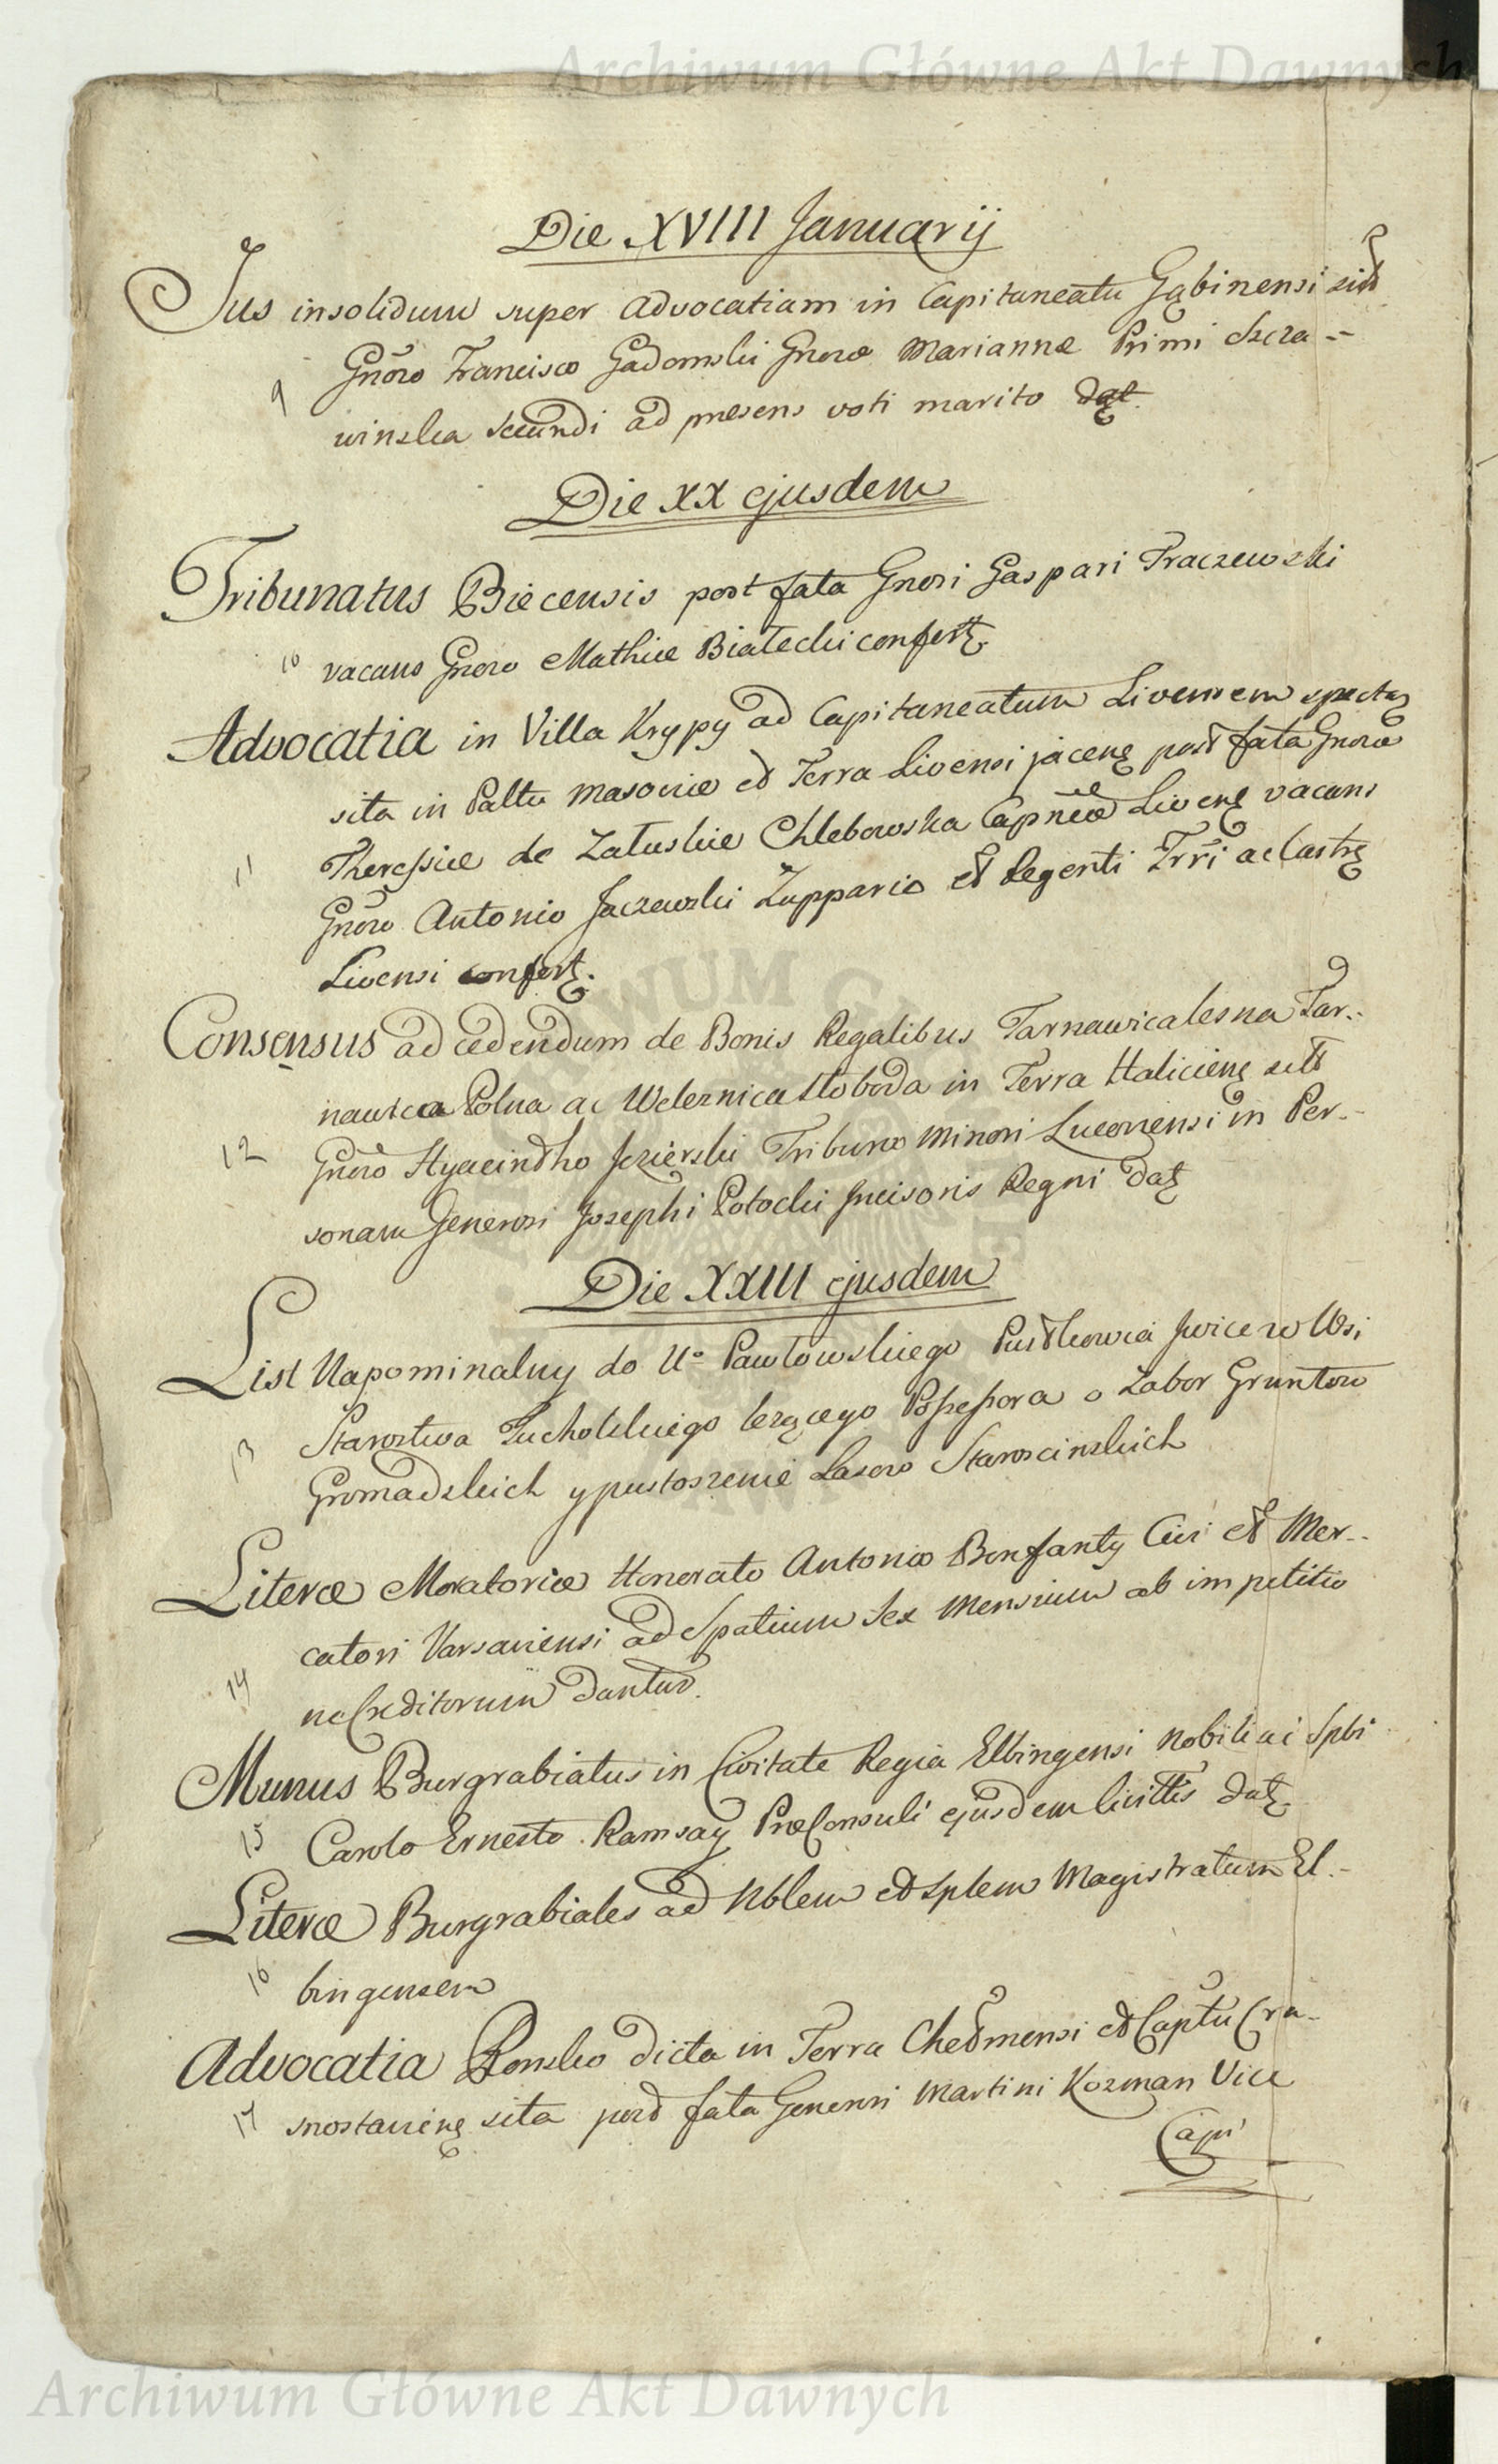 Archiwum Główne Akt Dawnych
Die XVIII Januarij
Jus insolidum super Advocatiam in Capitaneatu Gąbinensi sit
Gnoro Francisco Gadomski Gnoræ Mariannæ Primi Szcza--
9
winska Secundi ad præsens voti marito dat
Die XX ejusdem
Tribunatus Biecensis post fata Gnori Gaspari Traczewski
10 vacans Gnoro Mathiæ Białecki confert.
Advocatia in Villa Krypy ad Capitaneatum Livensem spectaę
sita in Paltu Masoviæ et Terra Livensi jacenę post fata Gnoræ
11 Theressiæ de Załuskie Chlebowska Capneæ Livenę vacans
Gnoro Antonio Jaczewski Zuppario et Regenti Trri ac Castrę
Livensi confert.
Consensus ad cedendum de Bonis Regalibus Tarnawica lesna Tar--
nawica Polna ac Weleznica Słoboda in Terra Halicienę sitt
12 Gnoro Hyacindho Jezierski Tribuno Minori Lucorięnsi in Per--
sonam Generosi Josephi Potocki Incisoris Regni datę
Die XXIII ejusdem
List Napominalny do Uo Pawłowskiego Pustkowia Jwicz w Wsi
13 Starostwa Tucholskiego lezącego Possessora o Zabor Gruntow
Gromadzkich y pustoszenie Lasow Staroscinskich
Literæ Moratoriæ Honorato Antonio Bonfanty Civi et Mer--
catori Varsaviensi ad Spatium Sex Mensium ab impetitio
14 ne Creditorum dantur.
Munus Burgrabiatus in Civitate Regia Elbingensi Nobili ac Splbi
15 Carolo Ernesto Ramsay PræConsuli ejusdem Civittis datę
Literæ Burgrabiales ad Nblem et Splem Magistratum El--
16 bingensem
Advocatia Ronsko dicta in Terra Chełmensi et Captu Cra-
17 snostavienę sita post fata Generosi Martini Kozmian Vice
Capi
Archiwum Główne Akt Dawnych